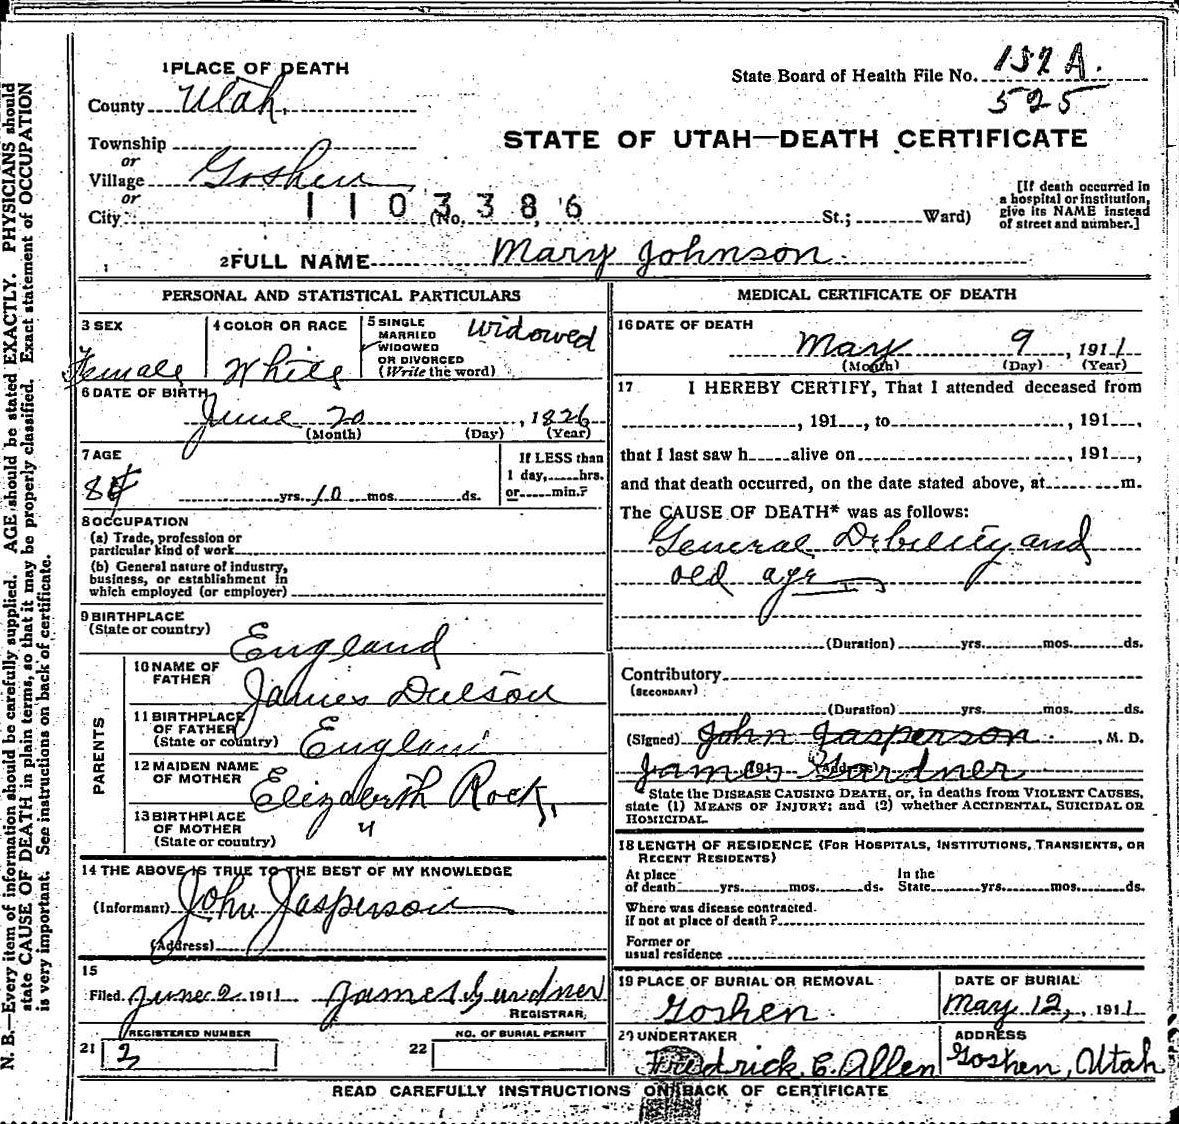 1 PLACE OF DEATH
State Board of Health File No. 152 A.
525
County Utah.
STATE OF UTAH—DEATH CERTIFICATE
Township
or
Village Goshen
or
City
1103386
(No. St.; Ward)
[If death occurred in
a hospital or institution,
give its NAME instead
of street and number.]
2 FULL NAME Mary Johnson
PERSONAL AND STATISTICAL PARTICULARS
3 SEX
Female
4 COLOR OR RACE
White
5 SINGLE
MARRIED
WIDOWED
OR DIVORCED
(Write the word)
Widowed
6 DATE OF BIRTH
June 20, 1826
(Month) (Day) (Year)
7 AGE
84 yrs. 10 mos. ds.
If LESS than
1 day, hrs.
or min.?
8 OCCUPATION
(a) Trade, profession or
particular kind of work
(b) General nature of industry,
business, or establishment in
which employed (or employer)
9 BIRTHPLACE
(State or country)
England
PARENTS
10 NAME OF
FATHER
James Dulson
11 BIRTHPLACE
OF FATHER
(State or country)
England
12 MAIDEN NAME
OF MOTHER
Elizabeth Rock,
13 BIRTHPLACE
OF MOTHER
(State or country)
"
14 THE ABOVE IS TRUE TO THE BEST OF MY KNOWLEDGE
(Informant) John Jasperson
(Address)
15
Filed June 2 1911 James Gardner
REGISTRAR,
REGISTERED NUMBER
21 2
NO. OF BURIAL PERMIT
22
MEDICAL CERTIFICATE OF DEATH
16 DATE OF DEATH
May 9, 1911
(Month) (Day) (Year)
17 I HEREBY CERTIFY, That I attended deceased from
, 191 , to , 191 ,
that I last saw h alive on , 191 ,
and that death occurred, on the date stated above, at m.
The CAUSE OF DEATH* was as follows:
General Debility and
old age
(Duration) yrs. mos. ds.
Contributory
(SECONDARY)
(Duration) yrs. mos. ds.
(Signed) John Jasperson, M. D.
James Gardner
191 (Address)
State the DISEASE CAUSING DEATH, or, in deaths from VIOLENT CAUSES,
state (1) MEANS OF INJURY; and (2) whether ACCIDENTAL, SUICIDAL OR
HOMICIDAL.
18 LENGTH OF RESIDENCE (FOR HOSPITALS, INSTITUTIONS, TRANSIENTS, OR
RECENT RESIDENTS)
At place
of death yrs. mos. ds.
In the
State yrs. mos. ds.
Where was disease contracted.
if not at place of death?
Former or
usual residence
19 PLACE OF BURIAL OR REMOVAL
Goshen
DATE OF BURIAL
May 12, 1911
20 UNDERTAKER
Fredrick C. Allen
ADDRESS
Goshen, Utah
READ CAREFULLY INSTRUCTIONS ON BACK OF CERTIFICATE
N. B.—Every item of information should be carefully supplied. AGE should be stated EXACTLY. PHYSICIANS should
state CAUSE OF DEATH in plain terms, so that it may be properly classified. Exact statement of OCCUPATION
is very important. See instructions on back of certificate.